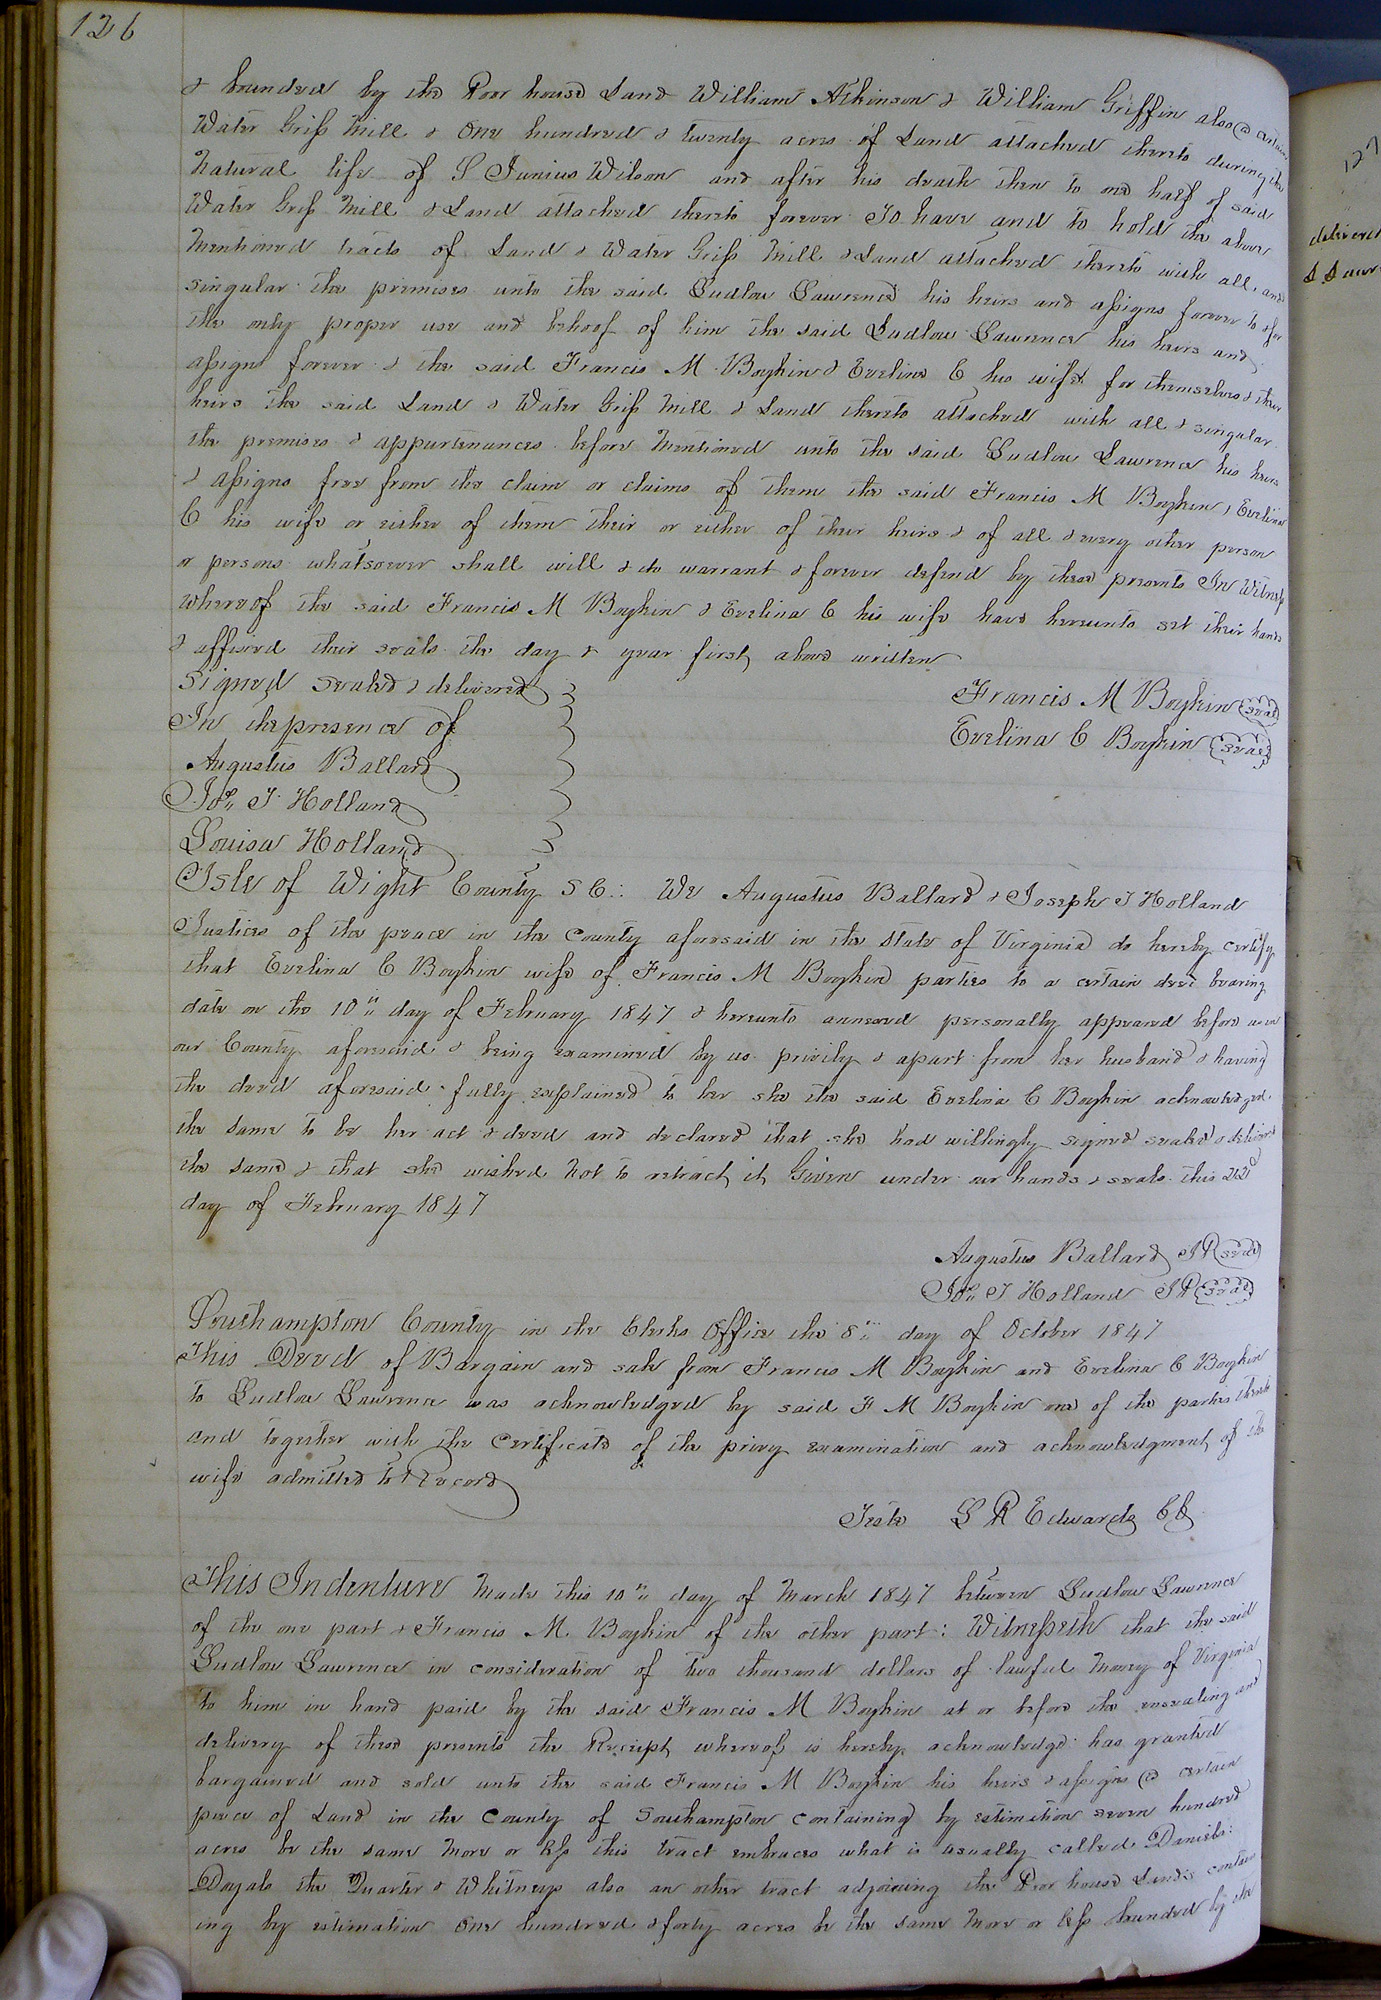 126
& bounded by the Poor house Land William Atkinson & William Griffin also a certain
Water Grist Mill & One hundred & twenty acres of Land attached thereto during the
Natural life of S Junius Wilson and after his death then to one half of said
Water Grist Mill & Land attached thereto forever To have and to hold the above
Mentioned tracts of Land & Water Grist Mill & Land attached thereto with all, and
singular the premises unto the said Ludlow Lawrence his heirs and assigns forever to & for
the only proper use and behoof of him the said Ludlow Lawrence his heirs and
assigns forever & the said Francis M Boykin & Evelina C his wife for themselves & their
heirs the said Land & Water Grist Mill & Land thereto attached with all & singular
the premises & appurtenances before Mentioned unto the said Ludlow Lawrence his heirs
& assigns free from the claim or claims of them the said Francis M Boykin & Evelina
C his wife or either of them their or either of their heirs & of all & every other person
or persons whatsoever shall will & do warrant & forever defend by these presents In Witness
whereof the said Francis M Boykin & Evelina C his wife have hereunto set their hands
& affixed their seals the day & year first above written
Signed sealed & delivered
In the presence of
Augustus Ballard
Jos. J Holland
Louisa Holland
Francis M Boykin (seal)
Evelina C Boykin (seal)
Isle of Wight County SC: We Augustus Ballard & Joseph J Holland
Justices of the peace in the County aforesaid in the State of Virginia do hereby certify
that Evelina C Boykin wife of Francis M Boykin parties to a certain deed bearing
date on the 10th day of February 1847 & hereunto annexed personally appeared before us in
our County aforesaid & being examined by us privily & apart from her husband & having
the deed aforesaid fully explained to her she the said Evelina C Boykin acknowledged
the same to be her act & deed and declared that she had willingly signed sealed & delivered
the same & that she wished Not to retract it Given under our hands & seals this 22d
day of February 1847
Augustus Ballard JP (seal)
Jos. J Holland JP (seal)
Southampton County in the Clerks Office the 8th day of October 1847
This Deed of Bargain and sale from Francis M Boykin and Evelina C Boykin
to Ludlow Lawrence was acknowledged by said F M Boykin one of the parties thereto
and together with the Certificate of the privy examination and acknowledgment of the
wife admitted to Record
Teste L R Edwards CC
This Indenture Made this 10th day of March 1847 between Ludlow Lawrence
of the one part & Francis M. Boykin of the other part: Witnesseth that the said
Ludlow Lawrence in consideration of two thousand dollars of lawful Money of Virginia
to him in hand paid by the said Francis M Boykin at or before the ensealing and
delivery of these presents the Receipt whereof is hereby acknowledge has granted
bargained and sold unto the said Francis M Boykin his heirs & assigns a certain
piece of Land in the County of Southampton containing by estimation seven hundred
acres be the same More or less this tract embraces what is usually called Daniels:
Doyals the Quarter & Whitneys also an other tract adjoining the Poor house Lands contain
ing by estimation One hundred & forty acres be the same More or less bounded by the
127